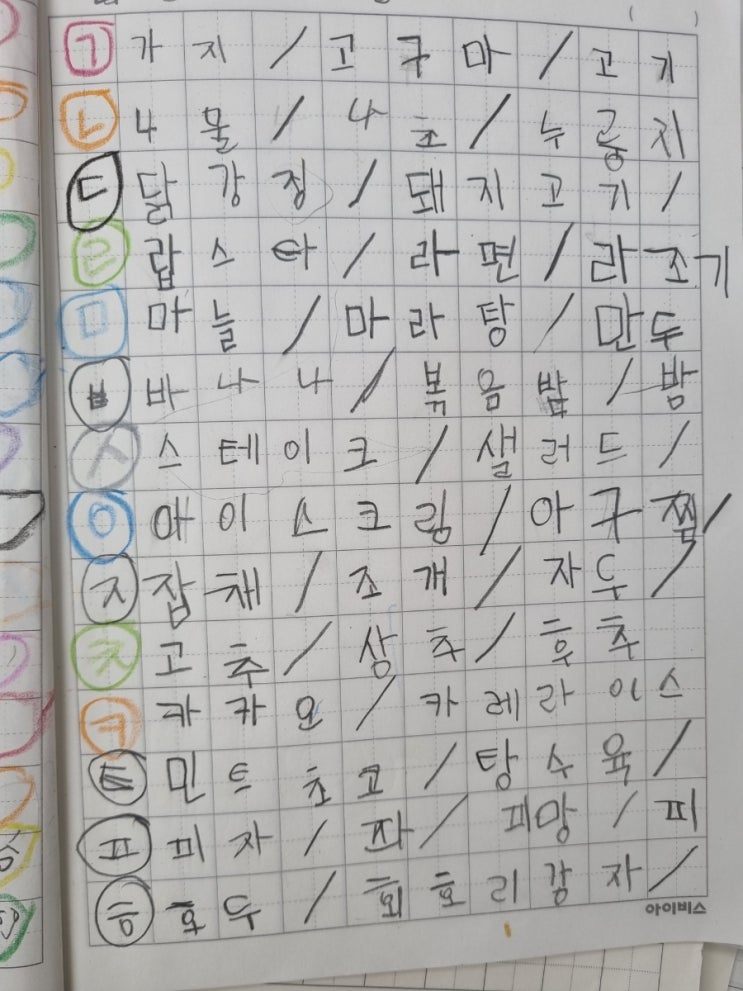 ( )
ㄱ 가지 / 고구마 / 고기
ㄴ 나물 / 나초 / 누룽지
ㄷ 닭강정 / 돼지고기 /
ㄹ 랍스타 / 라면 / 라조기
ㅁ 마늘 / 마라탕 / 만두
ㅂ 바나나 / 볶음밥 / 밤
ㅅ 스테이크 / 샐러드 /
ㅇ 아이스크림 / 아구찜 /
ㅈ 잡채 / 조개 / 자두 /
ㅊ 고추 / 상추 / 후추
ㅋ 카카오 / 카레라이스
ㅌ 민트초코 / 탕수육 /
ㅍ 피자 / 파 / 피망 / 피
ㅎ 호두 / 회호리감자 /
아이비스